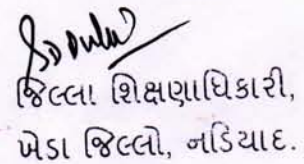 જિલ્લા શિક્ષણાધિકારી,
ખેડા જિલ્લો, નડિયાદ.